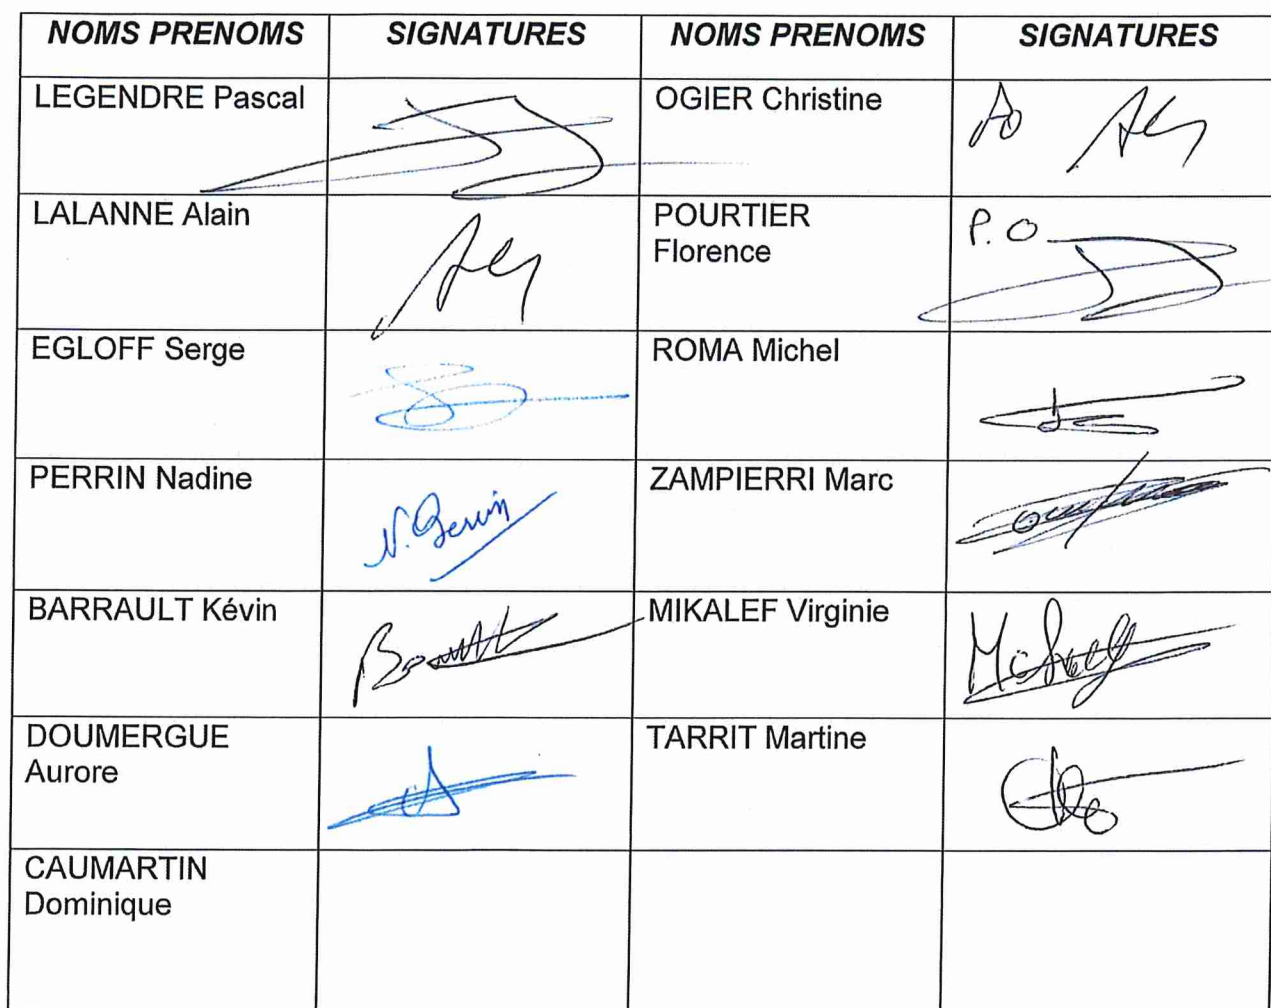 NOMS PRENOMS SIGNATURES NOMS PRENOMS SIGNATURES
LEGENDRE Pascal OGIER Christine
LALANNE Alain POURTIER P.O
Florence
EGLOFF Serge ROMA Michel
PERRIN Nadine ZAMPIERRI Marc
N. Perrin
BARRAULT Kévin MIKALEF Virginie
DOUMERGUE TARRIT Martine
Aurore
CAUMARTIN
Dominique